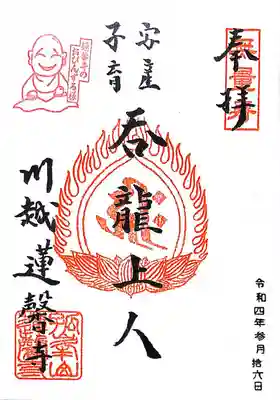 奉拝
安産
子育
呑龍上人
川越蓮馨寺
令和四年参月拾六日
おびんずる様